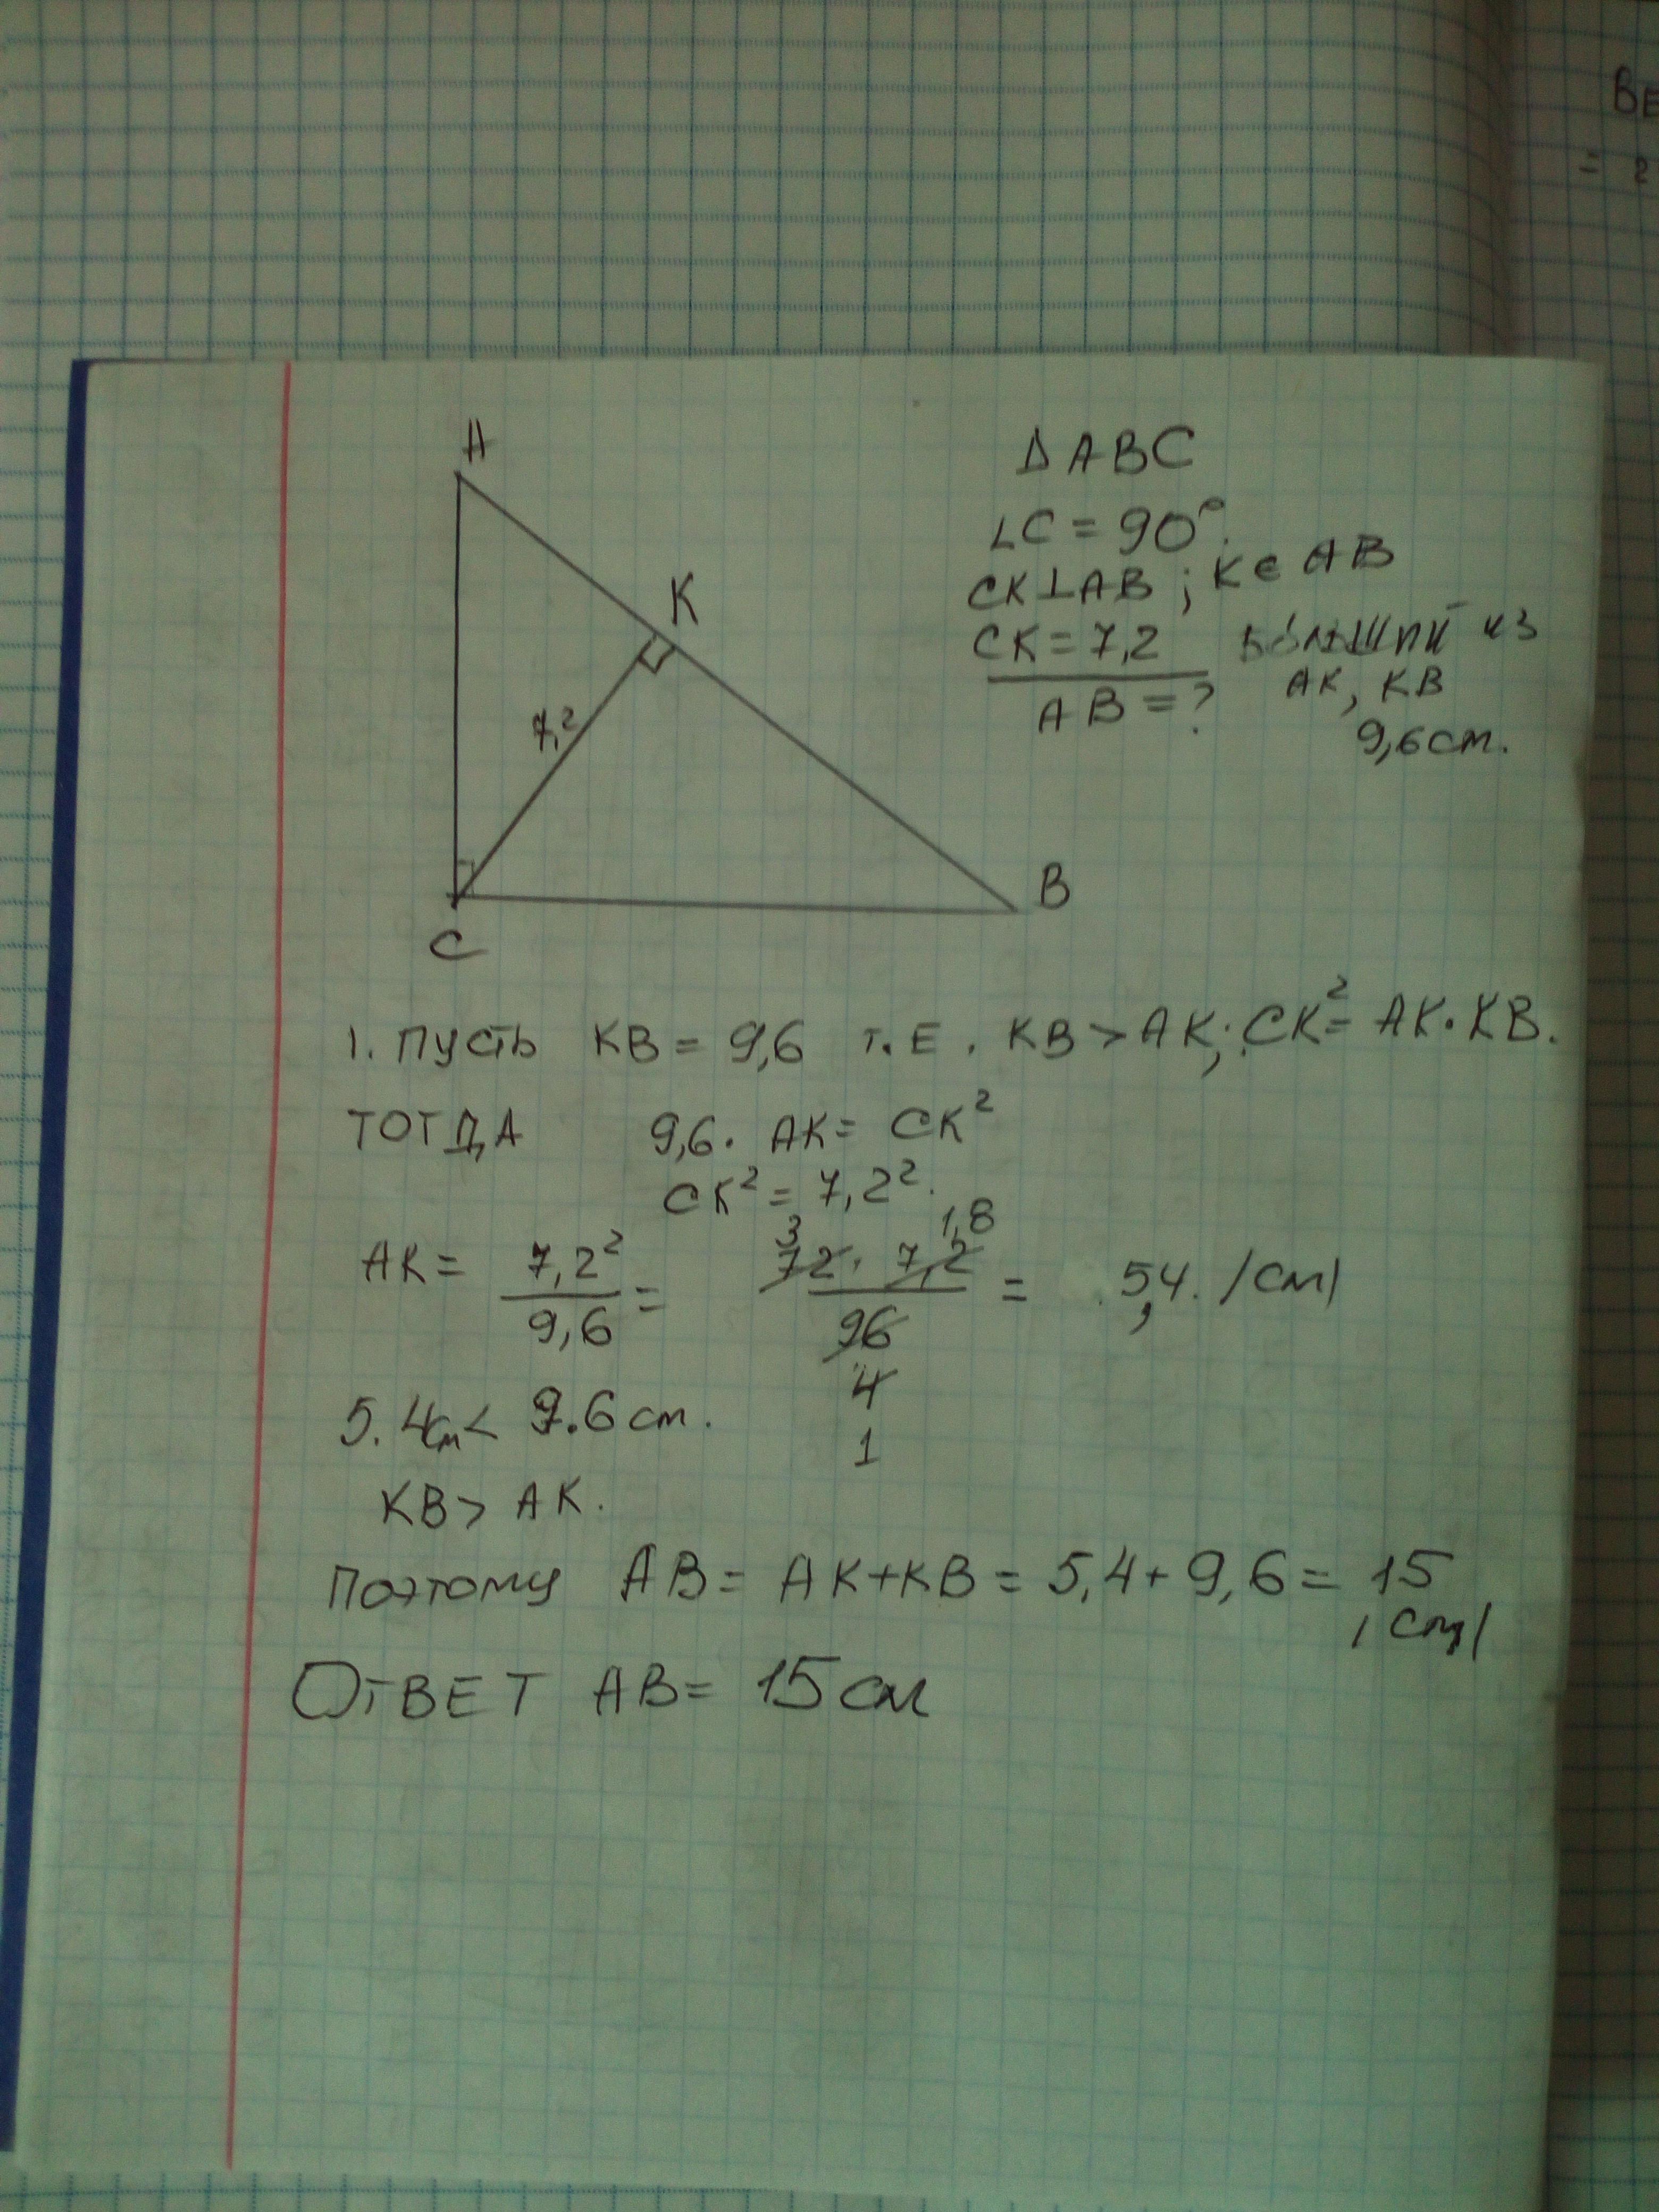 ВЕ
= 2
A
K
7,2
C
B
Δ ABC
∠C = 90°.
CK⊥AB ; K∈ AB
CK = 7,2
больший из
AK, KB
9,6 см.
AB = ?
1. Пусть KB = 9,6 т.е. KB > AK; CK² = AK · KB.
ТОГДА 9,6 · AK = CK²
CK² = 7,2².
3 1,8
AK = 7,2² / 9,6 = 72 · 7,2 / 96 = 5,4. /см/
4
1
5.4см < 9.6 см.
KB > AK.
Поэтому AB = AK + KB = 5,4 + 9,6 = 15
/см/
ОТВЕТ AB = 15 см